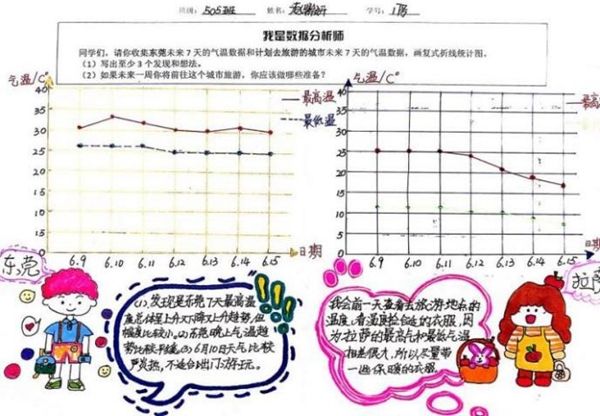 班级：505班 姓名： 学号：1
我是数据分析师
同学们，请你收集东莞未来7天的气温数据和计划去旅游的城市未来7天的气温数据，画复式折线统计图。
（1）写出至少3个发现和想法。
（2）如果未来一周你将前往这个城市旅游，你应该做哪些准备？
气温/C°
最高温
最低温
40
35
30
25
20
15
10
5
0
6.9 6.10 6.11 6.12 6.13 6.14 6.15
日期
东莞
气温/C°
最高温
最低
40
35
30
25
20
15
10
5
0
6.9 6.10 6.11 6.12 6.13 6.14 6.15
日期
拉萨
(1)发现是东莞7天最高温
度总体呈上升又下降又上升趋势，但
幅度比较小。(2)东莞晚上气温趋
势比较平缓。(3)6月10日天气比较
炎热，不适合出门游玩。
我会前一天查看去旅游地点的
温度，看温度检合适的衣服，因
为拉萨的最高气和最低气温
相差很大，所以尽量带
一些保暖的衣服。